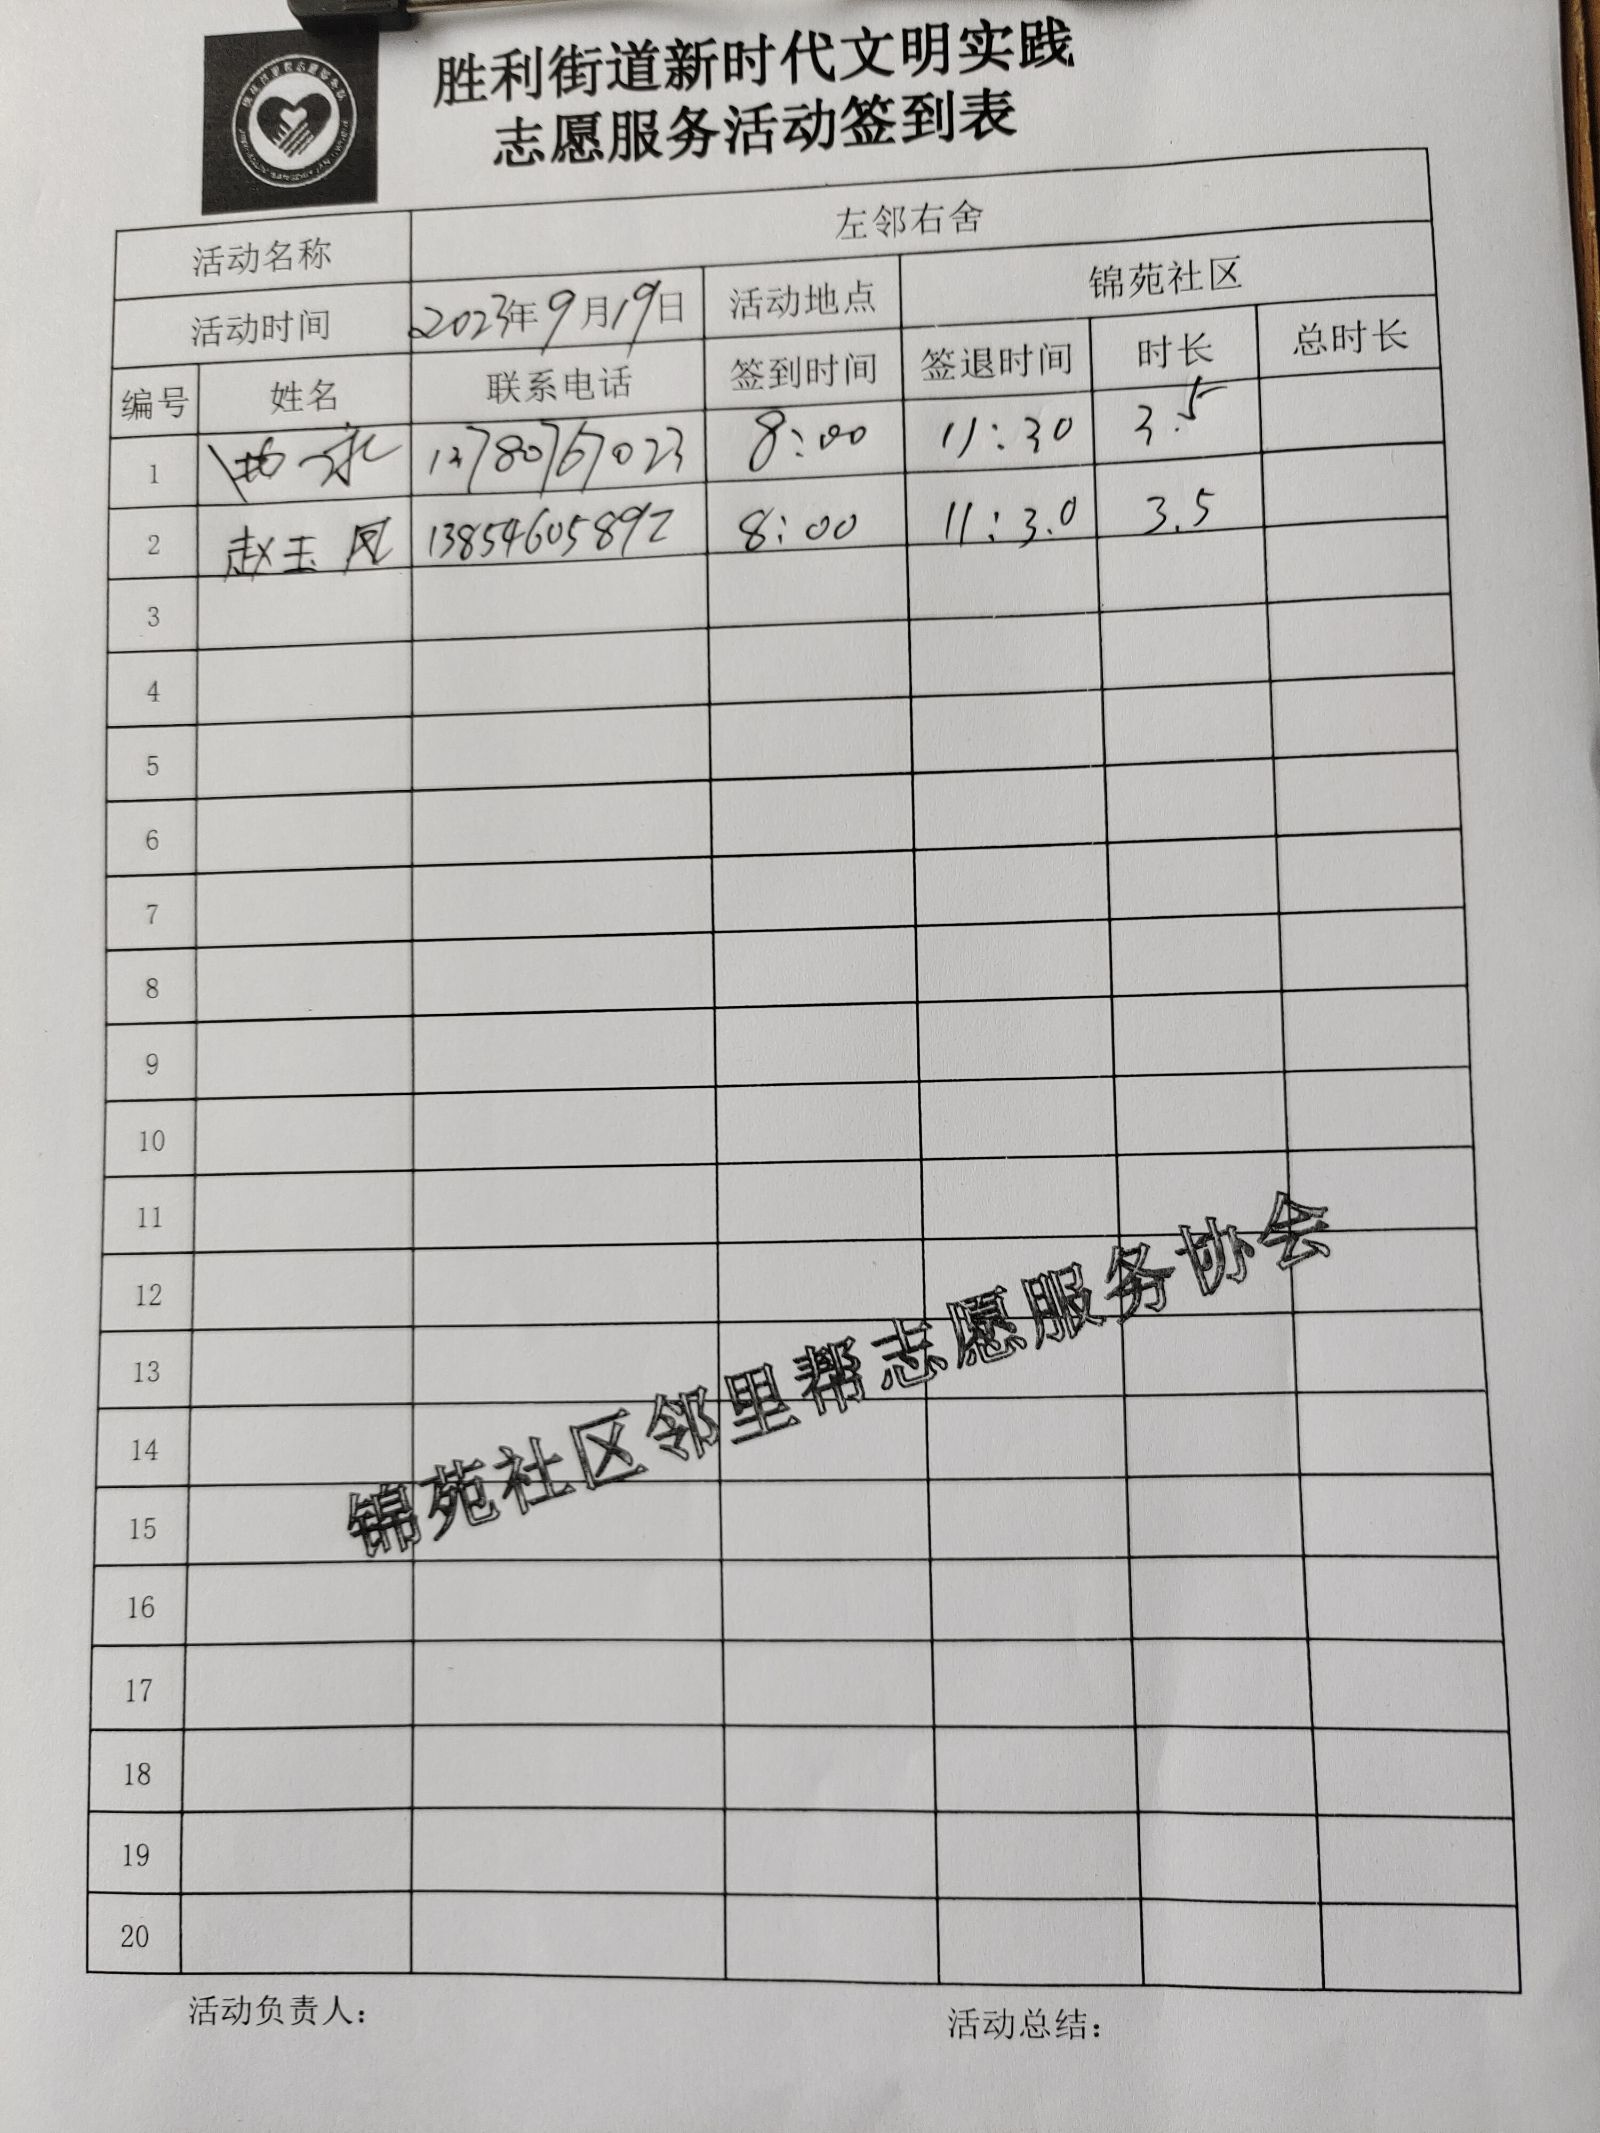 胜利街道新时代文明实践
志愿服务活动签到表
活动名称 左邻右舍
活动时间 2023年9月19日 活动地点 锦苑社区
编号 姓名 联系电话 签到时间 签退时间 时长 总时长
1 13780767023 8:00 11:30 3.5
2 赵玉凤 13854605892 8:00 11:3.0 3.5
3
4
5
6
7
8
9
10
11
12
13
14
15
16
17
18
19
20
锦苑社区邻里帮志愿服务协会
活动负责人: 活动总结: